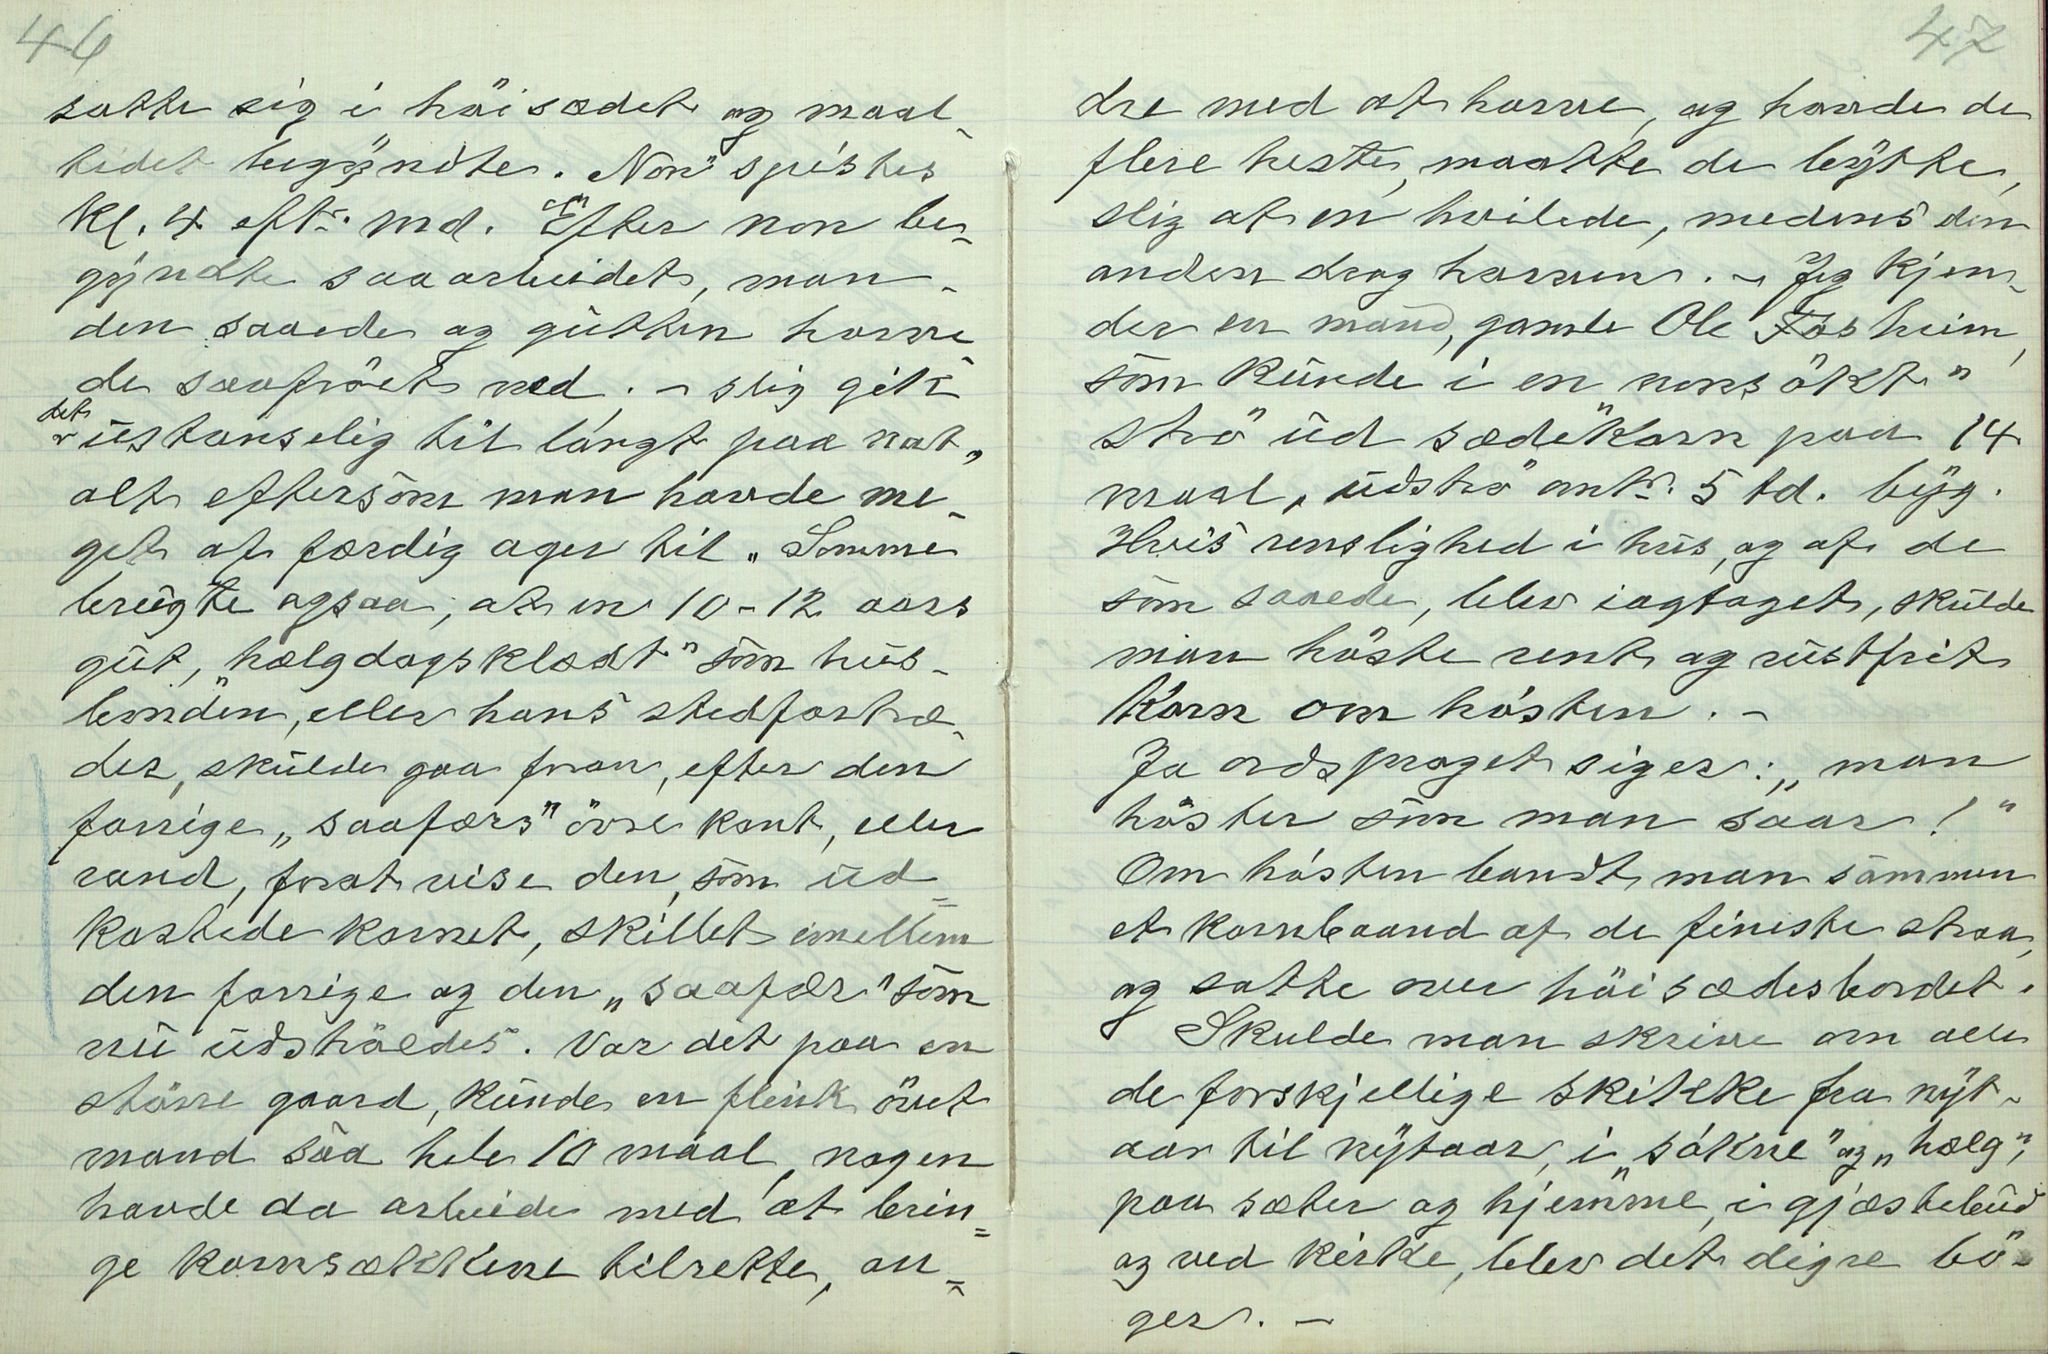 46
satte sig i höisædet og maal-
tidet begyndte. "Non" spistes
kl. 4 eftr. md. Efter non be-
gyndte saaarbeidet, man-
den saaede og gutten harve
de saafröet ned. - slig gik
det ustanselig til langt paa nat,
alt eftersom man havde me-
get af færdig ager til. Somme
brugte ogsaa, at en 10-12 aars
gut, "hælgdagsklædt" som hus-
bonden, eller hans stedfortræ-
der, skulde gaa foran, efter den
forrige "saafærs" övre kant, eller
rand, forat vise den, som ud-
kastede kornet, skillet imellem
den forrige og den "saafær" som
nu udströedes. Var det paa en
större gaard, kunde en flenk övet
mand saa hele 10 maal, nogen
havde da arbeide med at brin-
ge kornsækkene tilrette, an-
47
dre med at harve, og havde de
flere heste, maatte de bytte,
slig at en hvilede, medens den
anden drog harven. - Jeg kjen-
der en mand, gamle Ole Fosheim,
som kunde i en nonsökt"
strö ud sædekorn paa 14
maal, udströ omtr. 5 td. byg.
Hvis renslighed i hus, og af de
som saaede, blev iagtaget, skulde
man höste rent og rustfrit
korn om hösten. -
Ja ordsproget siger: "man
höster som man saar!"
Om hösten bandt man sammen
et kornbaand af de fineste straa,
og satte over höisædesbordet.
Skulde man skrive om alle
de forskjellige skikke fra nyt-
aar til nytaar, i "sökne" og "hælg",
paa sæter og hjemme, i gjæstebud
og ved kirke, blev det digre bö-
ger. -